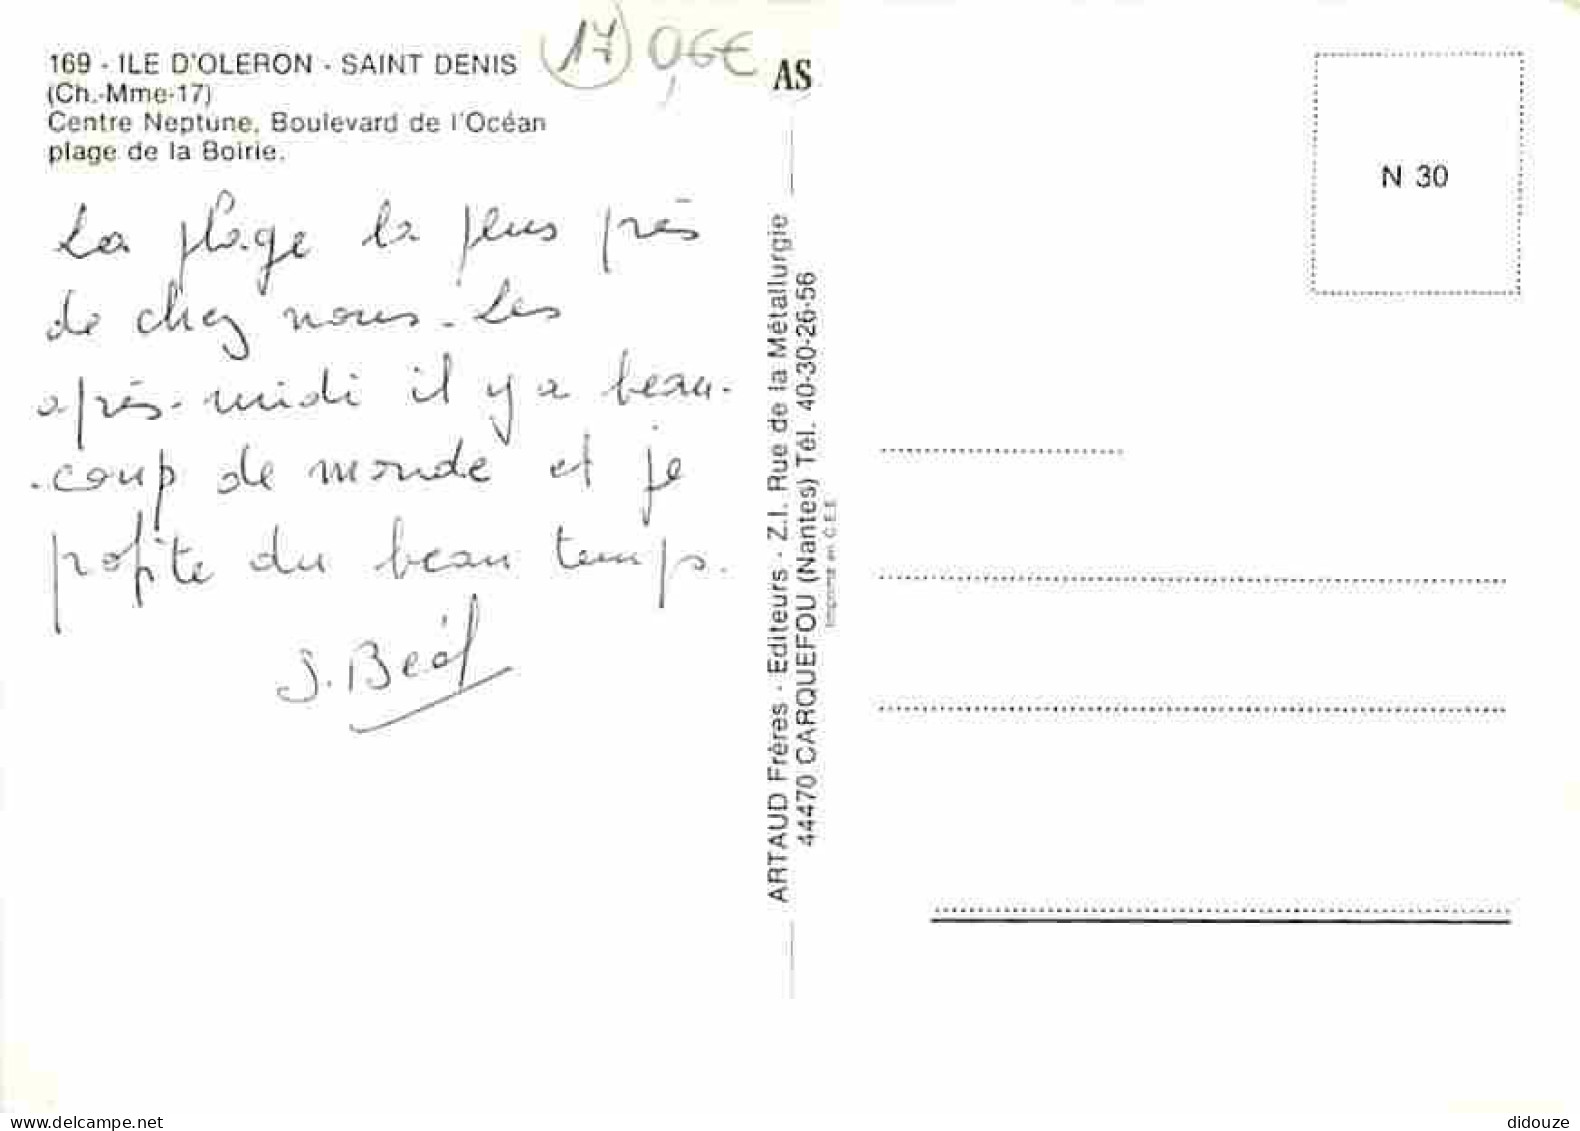 169 - ILE D'OLERON - SAINT DENIS
(Ch.-Mme-17)
Centre Neptune, Boulevard de l'Océan
plage de la Boirie.
17 0,6€
AS
N 30
La plage la plus près
de chez nous. Les
après-midi il y a beau-
-coup de monde et je
profite du beau temps.
ARTAUD Frères - Editeurs - Z.I. Rue de la Métallurgie
44470 CARQUEFOU (Nantes) Tél. 40-30-26-56
Imprimé en C.E.E
delcampe.net
didouze